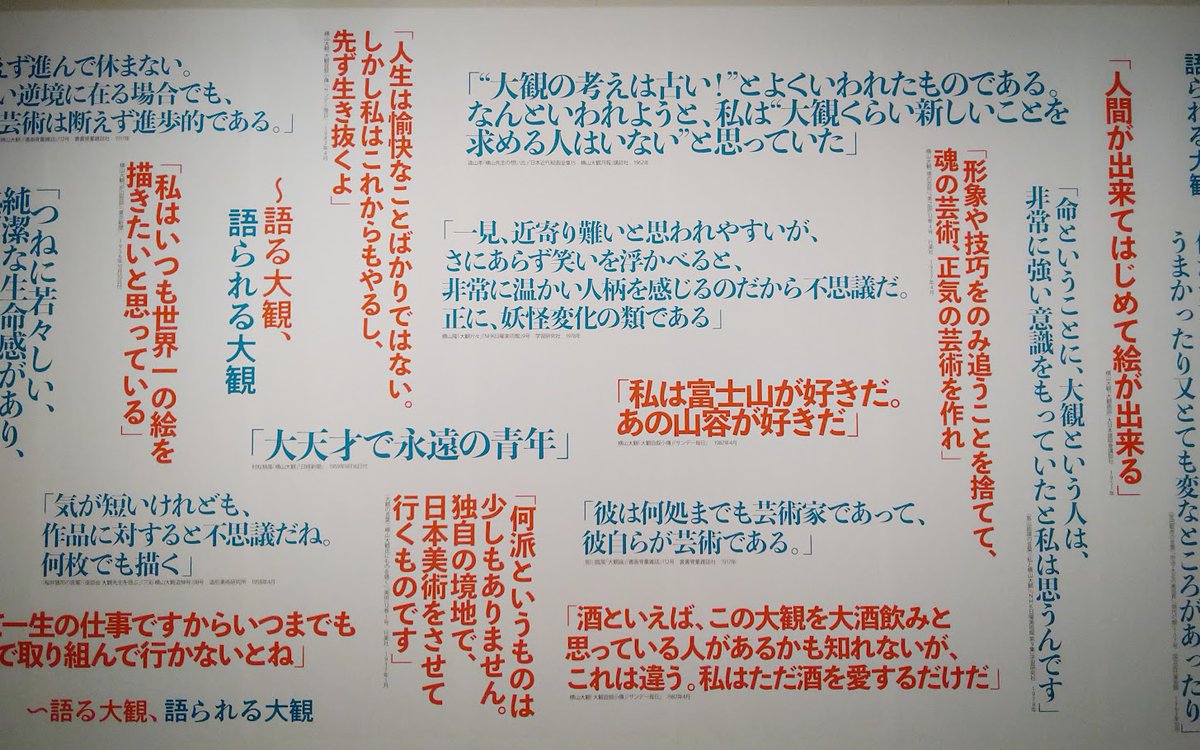 えず進んで休まない。
い逆境に在る場合でも、
芸術は断えず進歩的である。」
「人生は愉快なことばかりではない。
しかし私はこれからもやるし、
先ず生き抜くよ」
「“大観の考えは古い！”とよくいわれたものである。
なんといわれようと、私は“大観くらい新しいことを
求める人はいない”と思っていた」
「人間が出来てはじめて絵が出来る」
語られる大観
「つねに若々しい、
純潔な生命感があり、
「私はいつも世界一の絵を
描きたいと思っている」
〜語る大観、
語られる大観
「一見、近寄り難いと思われやすいが、
さにあらず笑いを浮かべると、
非常に温かい人柄を感じるのだから不思議だ。
正に、妖怪変化の類である」
「形象や技巧をのみ追うことを捨てて、
魂の芸術、正気の芸術を作れ」
「命ということに、大観という人は、
非常に強い意識をもっていたと私は思うんです」
うまかったり又とても変なところがあったり
「私は富士山が好きだ。
あの山容が好きだ」
「大天才で永遠の青年」
「気が短いけれども、
作品に対すると不思議だね。
何枚でも描く」
「何派というものは
少しもありません。
独自の境地で、
日本美術をさせて
行くものです」
「彼は何処までも芸術家であって、
彼自らが芸術である。」
一生の仕事ですからいつまでも
で取り組んで行かないとね」
「酒といえば、この大観を大酒飲みと
思っている人があるかも知れないが、
これは違う。私はただ酒を愛するだけだ」
〜語る大観、語られる大観